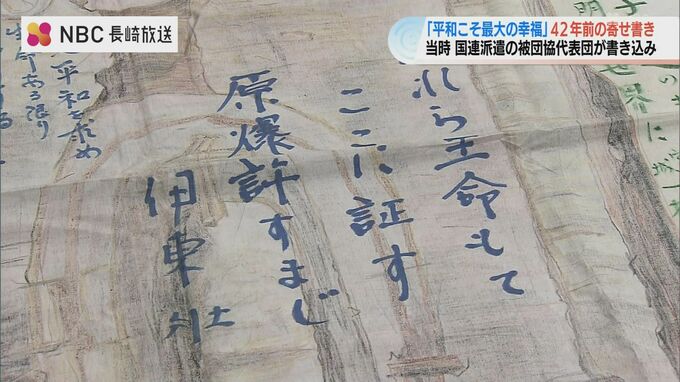 NBC 長崎放送
「平和こそ最大の幸福」42年前の寄せ書き
当時 国連派遣の被団協代表団が書き込み
れら生命もて
ここに証す
原爆許すまじ
伊東壮
平和を求め
生命ある限り
世界に
明子